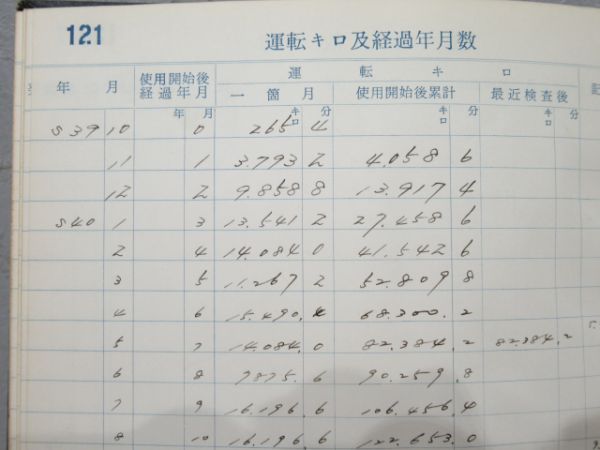 121
運転キロ及経過年月数
年 月 使用開始後経過年月 運転キロ
一箇月 使用開始後累計 最近検査後 記
年 月 キロ 分 キロ 分 キロ 分
S39 10 0 265 4
11 1 3.793 2 4.058 6
12 2 9.858 8 13.917 4
S40 1 3 13.541 2 27.458 6
2 4 14.084 0 41.542 6
3 5 11.267 2 52.809 8
4 6 15.490.4 68.300.2
5 7 14.084.0 82.384.2 82.384.2
6 8 7875.6 90.259.8
7 9 16.196.6 106.456.4
8 10 16.196.6 122.653.0